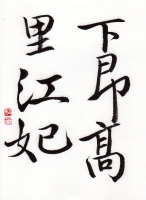 下高
里江妃